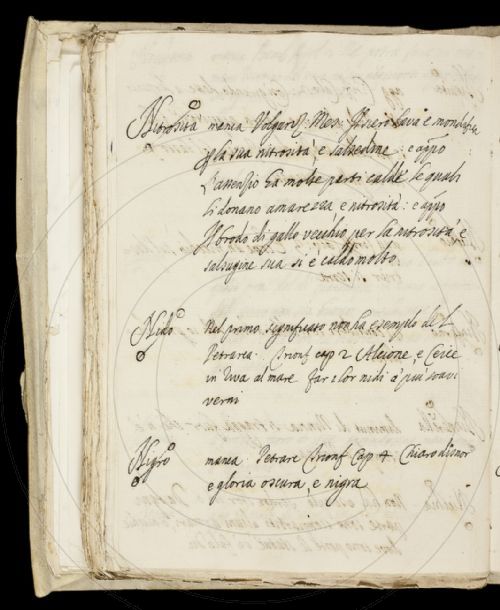 Nitrosità manca Volgariz: Mes: Il siero lava e mondifica
p la sua nitrosità, e salsedine: e appo
L'assenzio ha molte parti calde le quali
li donano amarezza, e nitrosità: e appo
Il brodo di gallo vecchio per la nitrosità e
salsugine sua si è caldo molto
Nido Nel primo significato non ha esempio del
Petrarca. Trionf cap 2 Alcione e Ceice
in riva al mare far i lor nidi a' più soavi
verni
Nigro manca Petrarc Trionf Cap 4 Chiaro disnor
e gloria oscura, e nigra